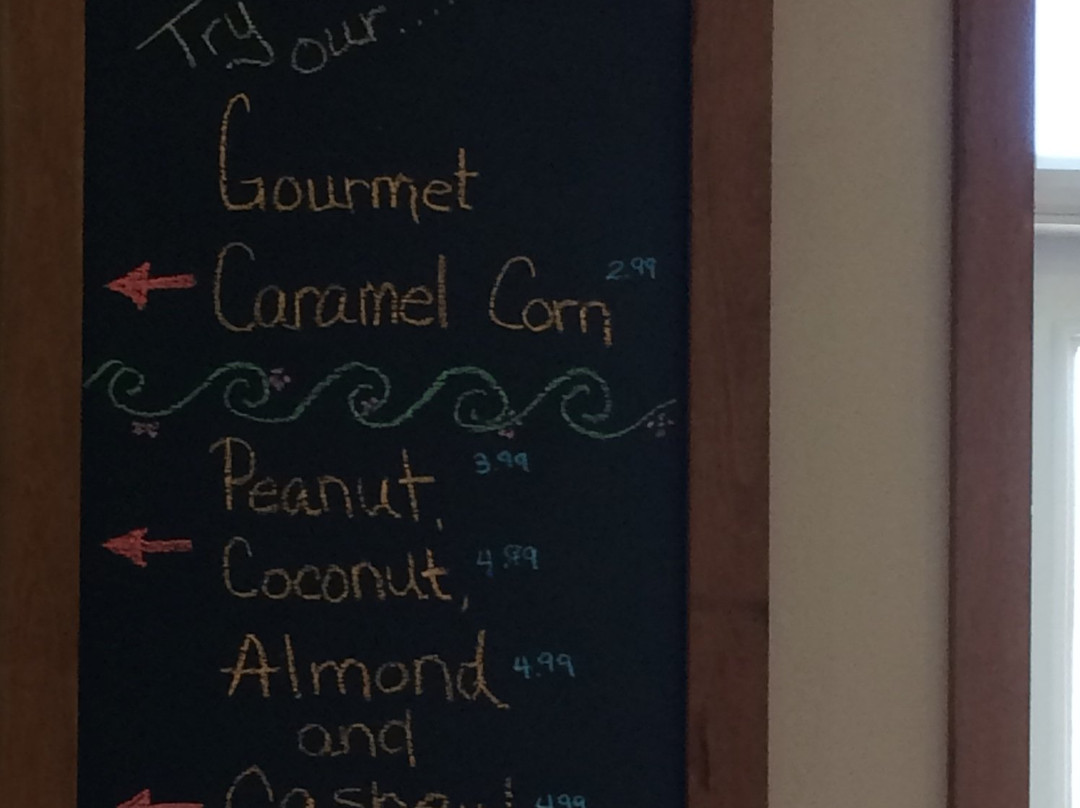 Try our....
Gourmet
Caramel Corn 2.99
Peanut, 3.99
Coconut, 4.99
Almond 4.99
and
Cashew! 4.99